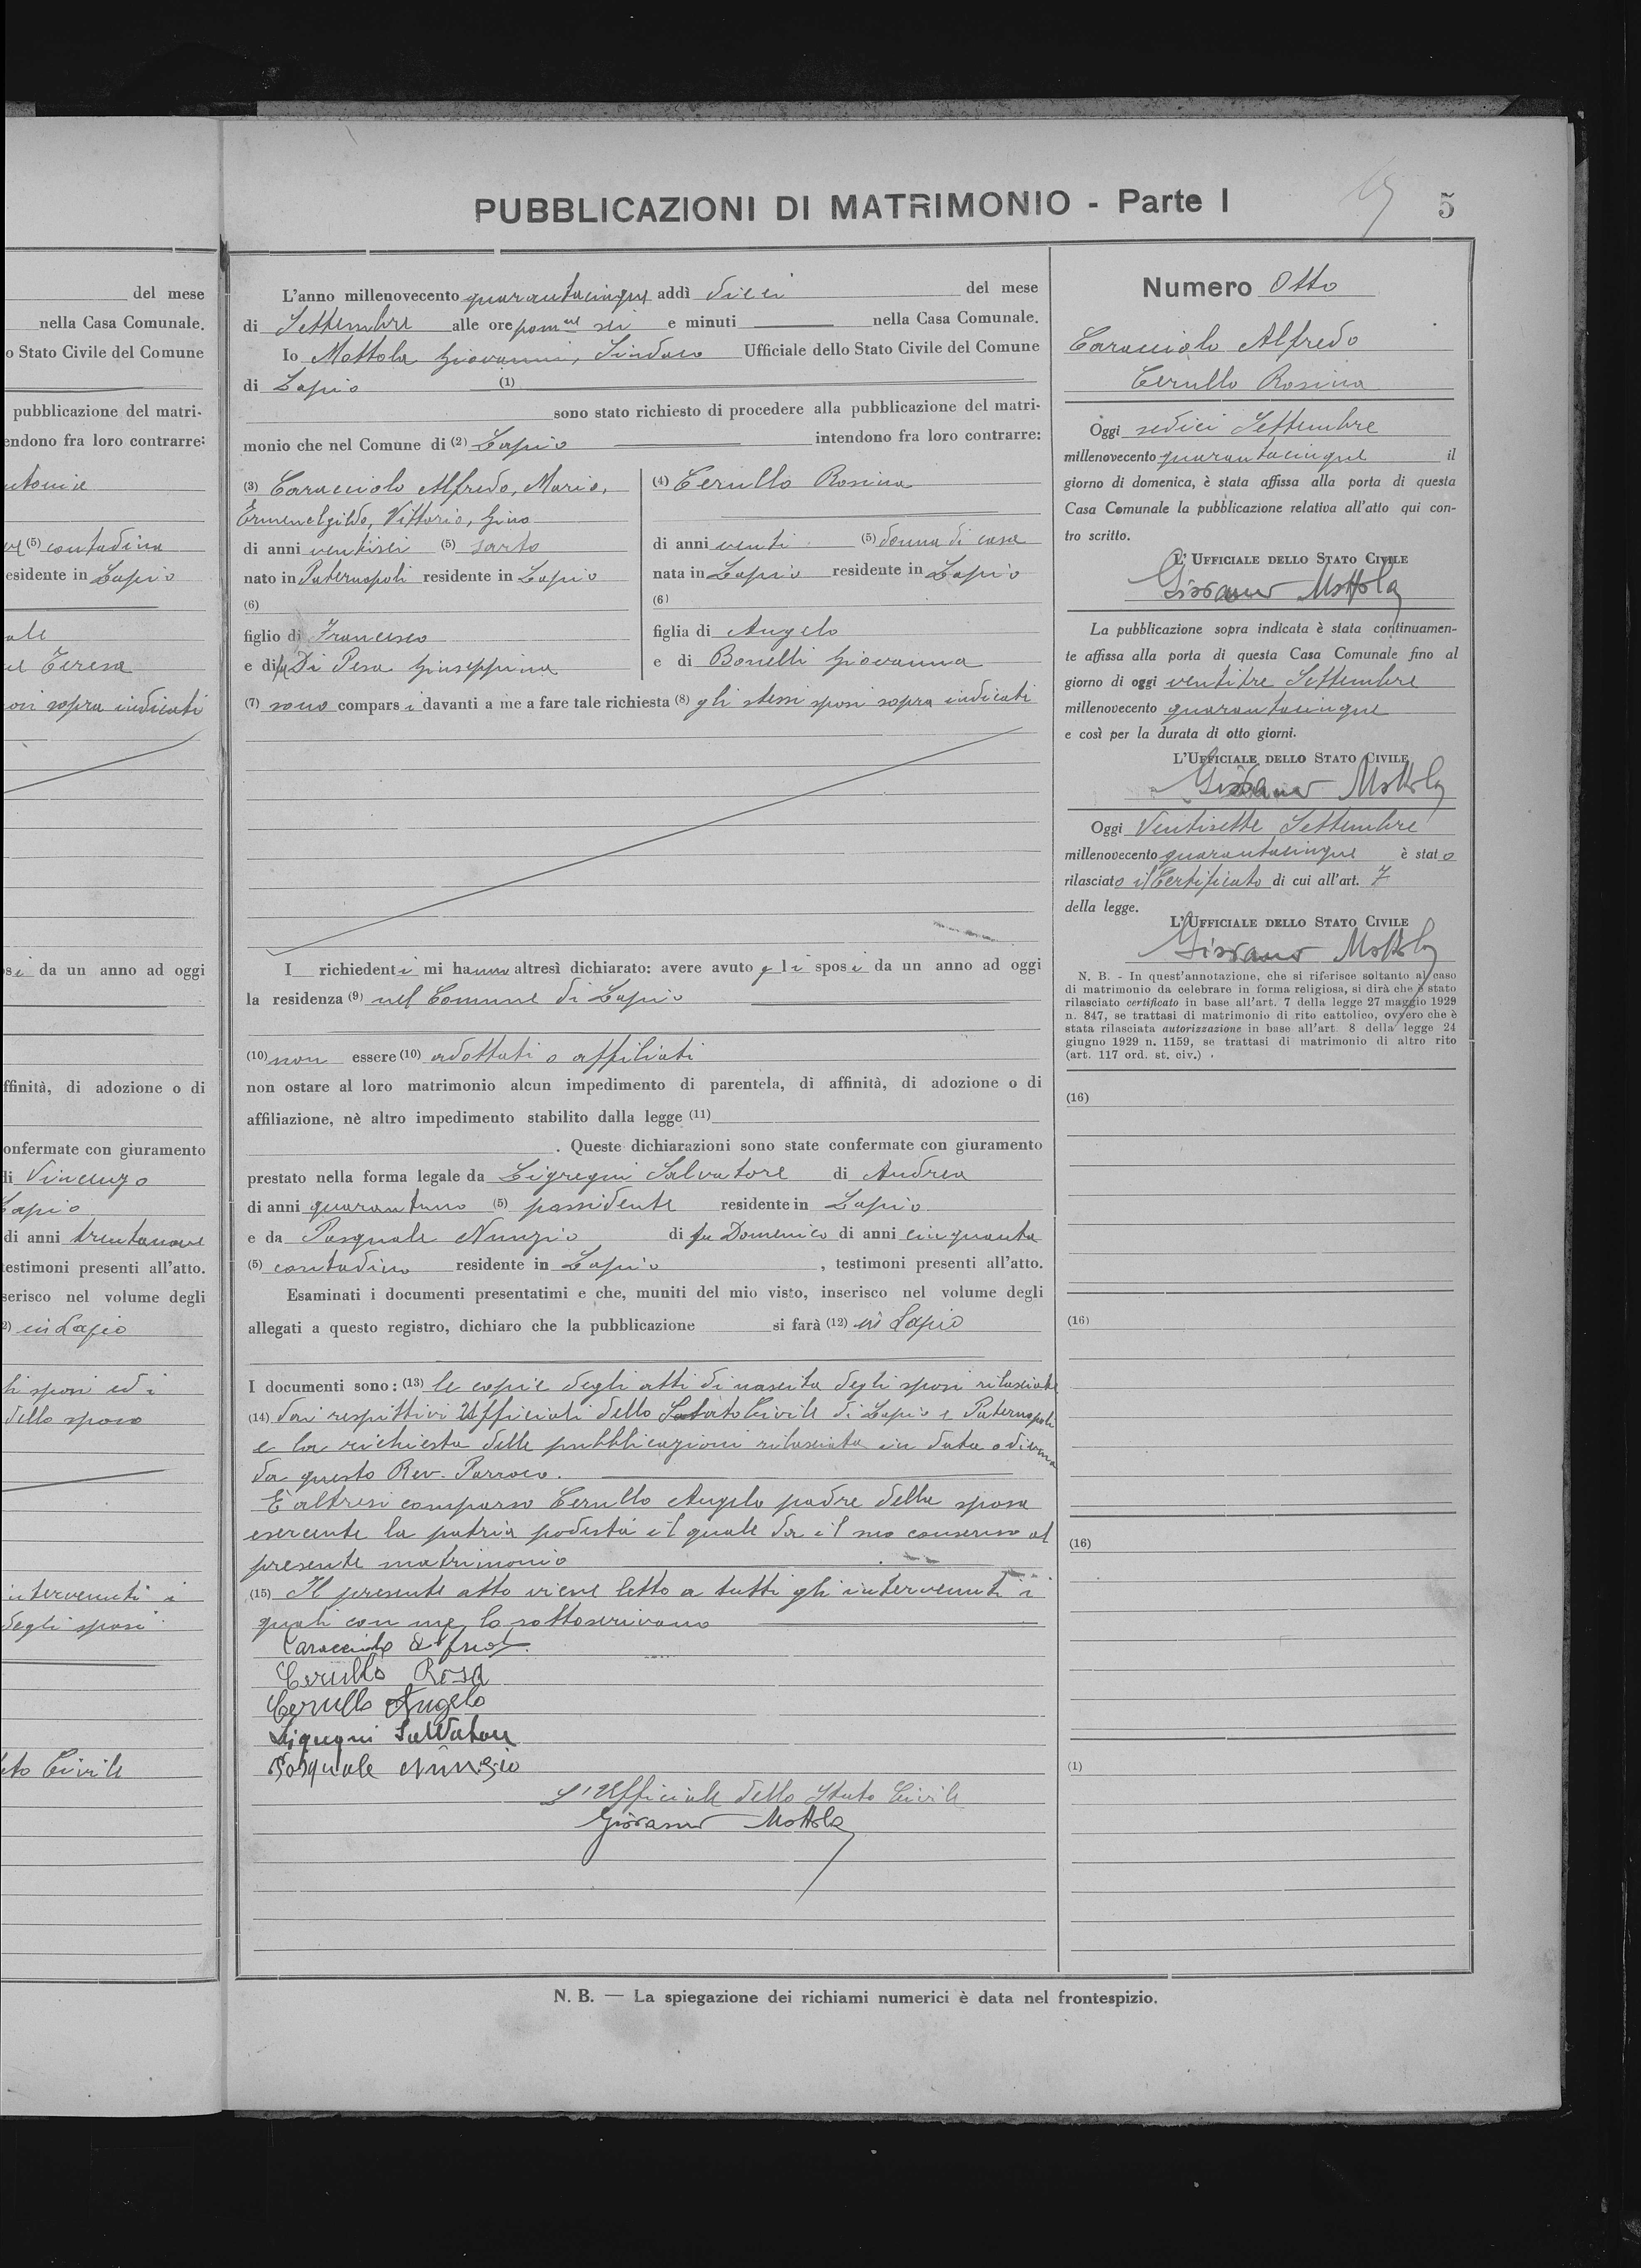 PUBBLICAZIONI DI MATRIMONIO - Parte I
5
del mese
nella Casa Comunale.
o Stato Civile del Comune
pubblicazione del matri-
endono fra loro contrarre:
(5) contadina
esidente in Lapio
Teresa
sopra indicati
da un anno ad oggi
ffinità, di adozione o di
onfermate con giuramento
di Vincenzo
Lapio
di anni trentanove
testimoni presenti all'atto.
serisco nel volume degli
in Lapio
sposi ed i
dello sposo
intervenuti i
degli sposi
Civile
L'anno millenovecento quarantacinque addì dieci del mese
di Settembre alle ore pom.ne sei e minuti nella Casa Comunale.
Io Mottola Giovanni, Sindaco Ufficiale dello Stato Civile del Comune
di Lapio (1)
sono stato richiesto di procedere alla pubblicazione del matri-
monio che nel Comune di (2) Lapio intendono fra loro contrarre:
(3) Caracciolo Alfredo, Mario,
Ermenelgildo, Vittorio, Gino
di anni ventisei (5) sarto
nato in Paternopoli residente in Lapio
(6)
figlio di Francesco
e di fu Di Pesa Giuseppina
(4) Cerullo Rosina
di anni venti (5) donna di casa
nata in Lapio residente in Lapio
(6)
figlia di Angelo
e di Bonelli Giovanna
(7) sono comparsi davanti a me a fare tale richiesta (8) gli stessi sposi sopra indicati
I richiedenti mi hanno altresì dichiarato: avere avuto gli sposi da un anno ad oggi
la residenza (9) nel Comune di Lapio
(10) non essere (10) adottati o affiliati
non ostare al loro matrimonio alcun impedimento di parentela, di affinità, di adozione o di
affiliazione, nè altro impedimento stabilito dalla legge (11)
. Queste dichiarazioni sono state confermate con giuramento
prestato nella forma legale da Ligregni Salvatore di Andrea
di anni quarantuno (5) possidente residente in Lapio
e da Pasquale Nunzio di fu Domenico di anni cinquanta
(5) contadino residente in Lapio, testimoni presenti all'atto.
Esaminati i documenti presentatimi e che, muniti del mio visto, inserisco nel volume degli
allegati a questo registro, dichiaro che la pubblicazione si farà (12) in Lapio
I documenti sono: (13) le copie degli atti di nascita degli sposi rilasciate
(14) dai respittivi Ufficiali dello Stato Civile di Lapio e Paternopoli
e la richiesta delle pubblicazioni rilasciata in data odierna
da questo Rev. Parroco.
È altresi comparso Cerullo Angelo padre della sposa
esercente la patria podestà il quale da il suo consenso al
presente matrimonio
(15) Il presente atto viene letto a tutti gli intervenuti i
quali con me lo sottoscrivono
Caracciolo
Cerullo Rosa
Cerullo Angelo
Ligregni Salvatore
Pasquale Nunzio
L'Ufficiale dello Stato Civile
Giovanni Mottola
Numero Otto
Caracciolo Alfredo
Cerullo Rosina
Oggi sedici Settembre
millenovecento quarantacinque il
giorno di domenica, è stata affissa alla porta di questa
Casa Comunale la pubblicazione relativa all'atto qui con-
tro scritto.
L'UFFICIALE DELLO STATO CIVILE
Giovanni Mottola
La pubblicazione sopra indicata è stata continuamen-
te affissa alla porta di questa Casa Comunale fino al
giorno di oggi ventitre Settembre
millenovecento quarantacinque
e così per la durata di otto giorni.
L'UFFICIALE DELLO STATO CIVILE
Giovanni Mottola
Oggi Ventisette Settembre
millenovecento quarantacinque è stato
rilasciato il Certificato di cui all'art. 7
della legge.
L'UFFICIALE DELLO STATO CIVILE
Giovanni Mottola
N. B. - In quest'annotazione, che si riferisce soltanto al caso
di matrimonio da celebrare in forma religiosa, si dirà che è stato
rilasciato certificato in base all'art. 7 della legge 27 maggio 1929
n. 847, se trattasi di matrimonio di rito cattolico, ovvero che è
stata rilasciata autorizzazione in base all'art. 8 della legge 24
giugno 1929 n. 1159, se trattasi di matrimonio di altro rito
(art. 117 ord. st. civ.) .
(16)
(16)
(16)
(1)
N. B. — La spiegazione dei richiami numerici è data nel frontespizio.